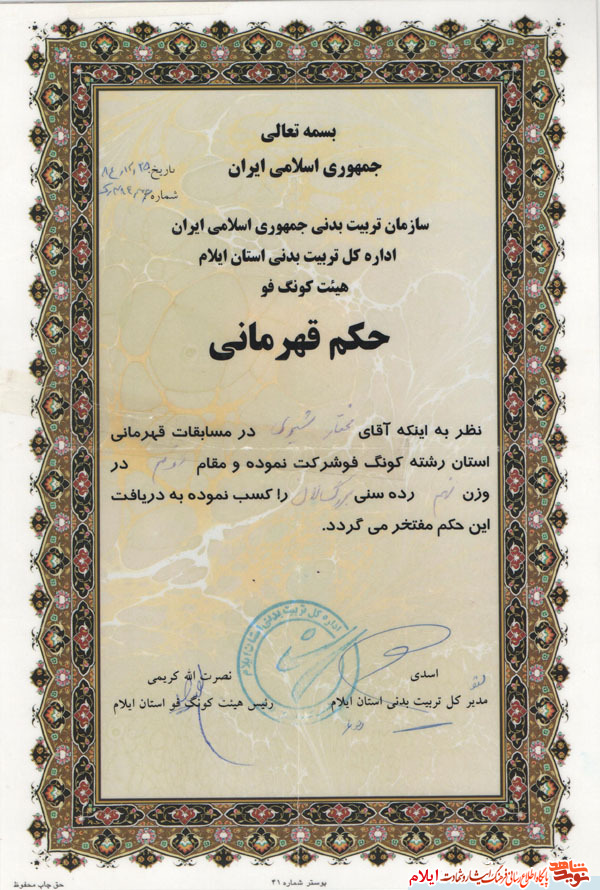 بسمه تعالی
جمهوری اسلامی ایران
تاریخ:
شماره:
سازمان تربیت بدنی جمهوری اسلامی ایران
اداره کل تربیت بدنی استان ایلام
هیئت کونگ فو
حکم قهرمانی
نظر به اینکه آقای مختار در مسابقات قهرمانی
استان رشته کونگ فو شرکت نموده و مقام در
وزن نهم رده سنی بزرگسالان را کسب نموده به دریافت
این حکم مفتخر می گردد.
اداره کل تربیت بدنی استان ایلام
اسدی
مدیر کل تربیت بدنی استان ایلام
نصرت الله کریمی
رئیس هیئت کونگ فو استان ایلام
پوستر شماره ۴۱
حق چاپ محفوظ
نوید شاهد
پایگاه اطلاع رسانی فرهنگ ایثار و شهادت ایلام